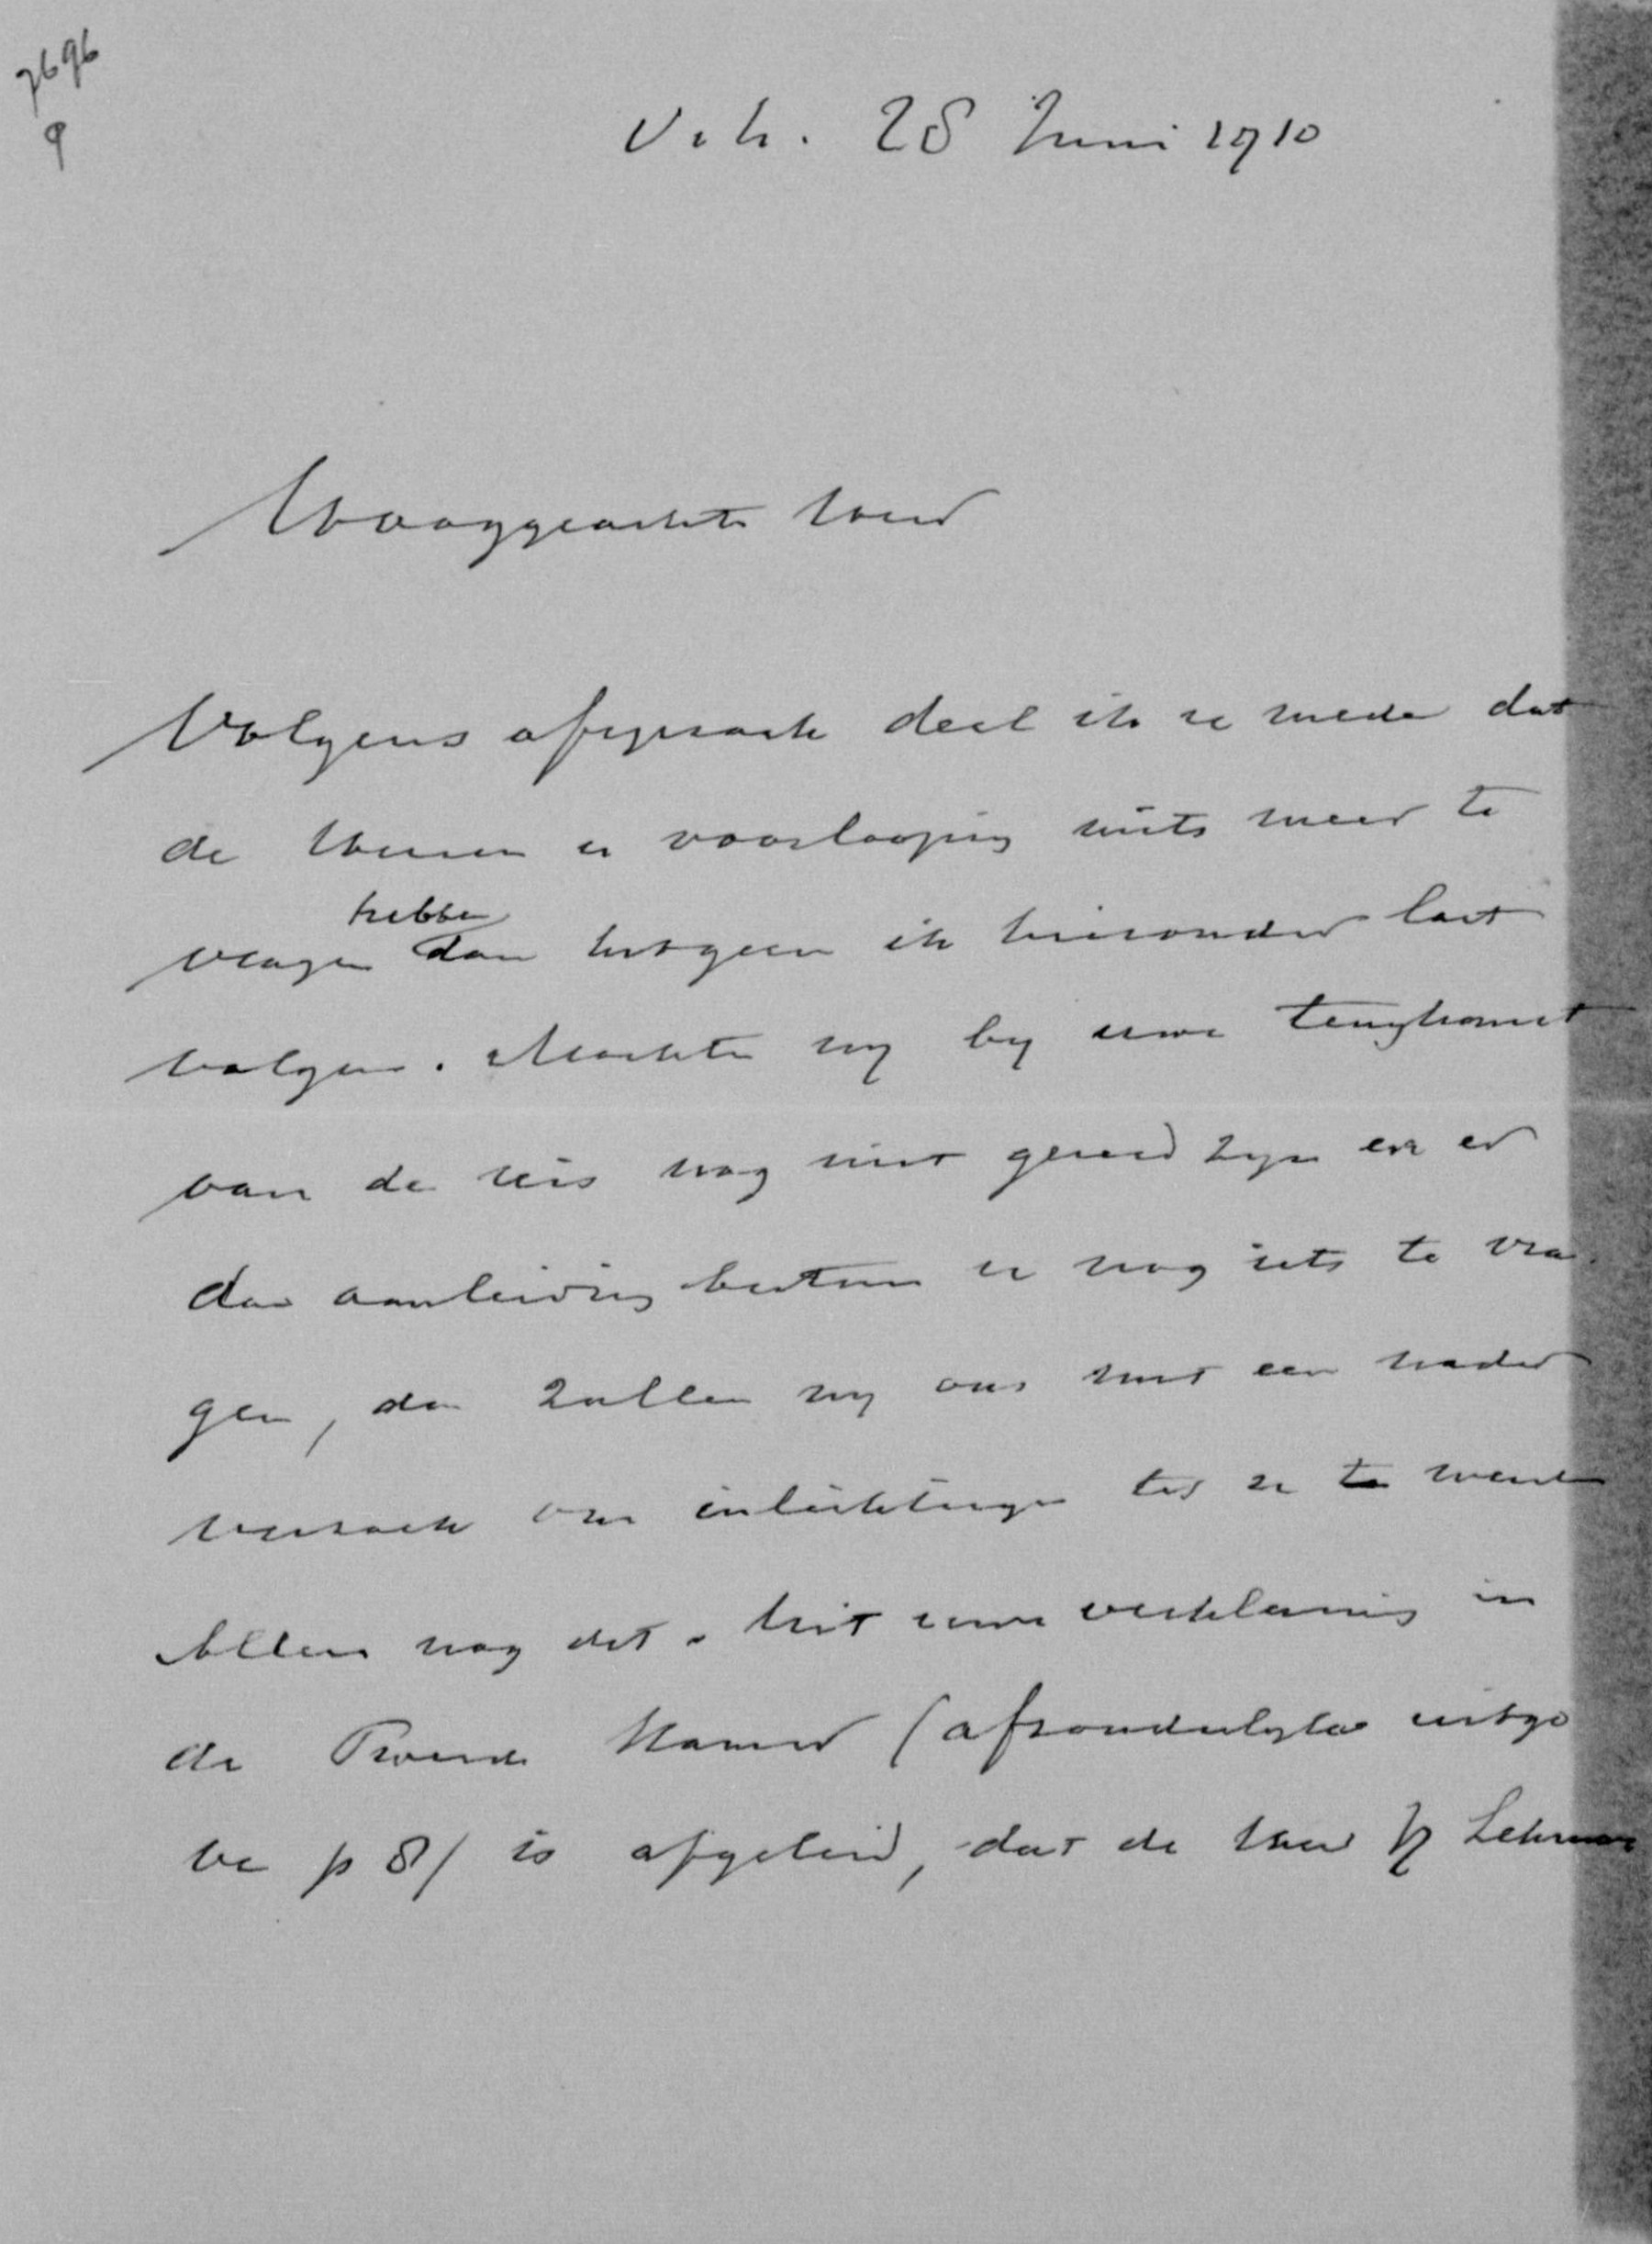 7696
9
28 Juni 1910
Hooggeachte heer
Volgens afspraak deel ik u mede dat
de heeren u voorloopig niets meer te
hebben
vragen dan hetgeen ik hieronder laat
volgen. Mochten wij bij uwe terugkomst
van de reis nog niet gereed zijn en er
dan aanleiding bestaan u nog iets te vra
gen, dan zullen wij ons met een nader
verzoek om inlichtingen tot u te wenden
Alleen nog dit. Uit uwe verklaring in
de Tweede Kamer (afzonderlijke uitga
ve p 8) is afgeleid, dat de heer Lehman